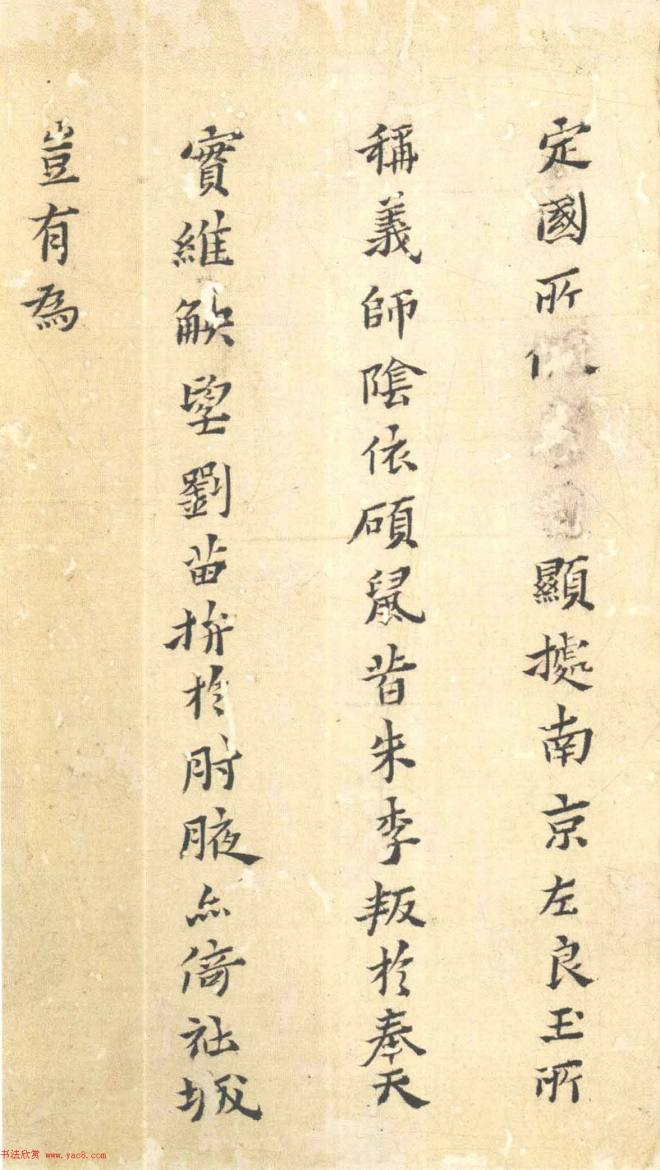 定國所顯據南京左良玉所
稱義師陰依碩鼠昔朱李叛於奉天
實維觖望劉苗拼於肘腋亦倚社城
豈有為
书法欣赏 www.yac8.com